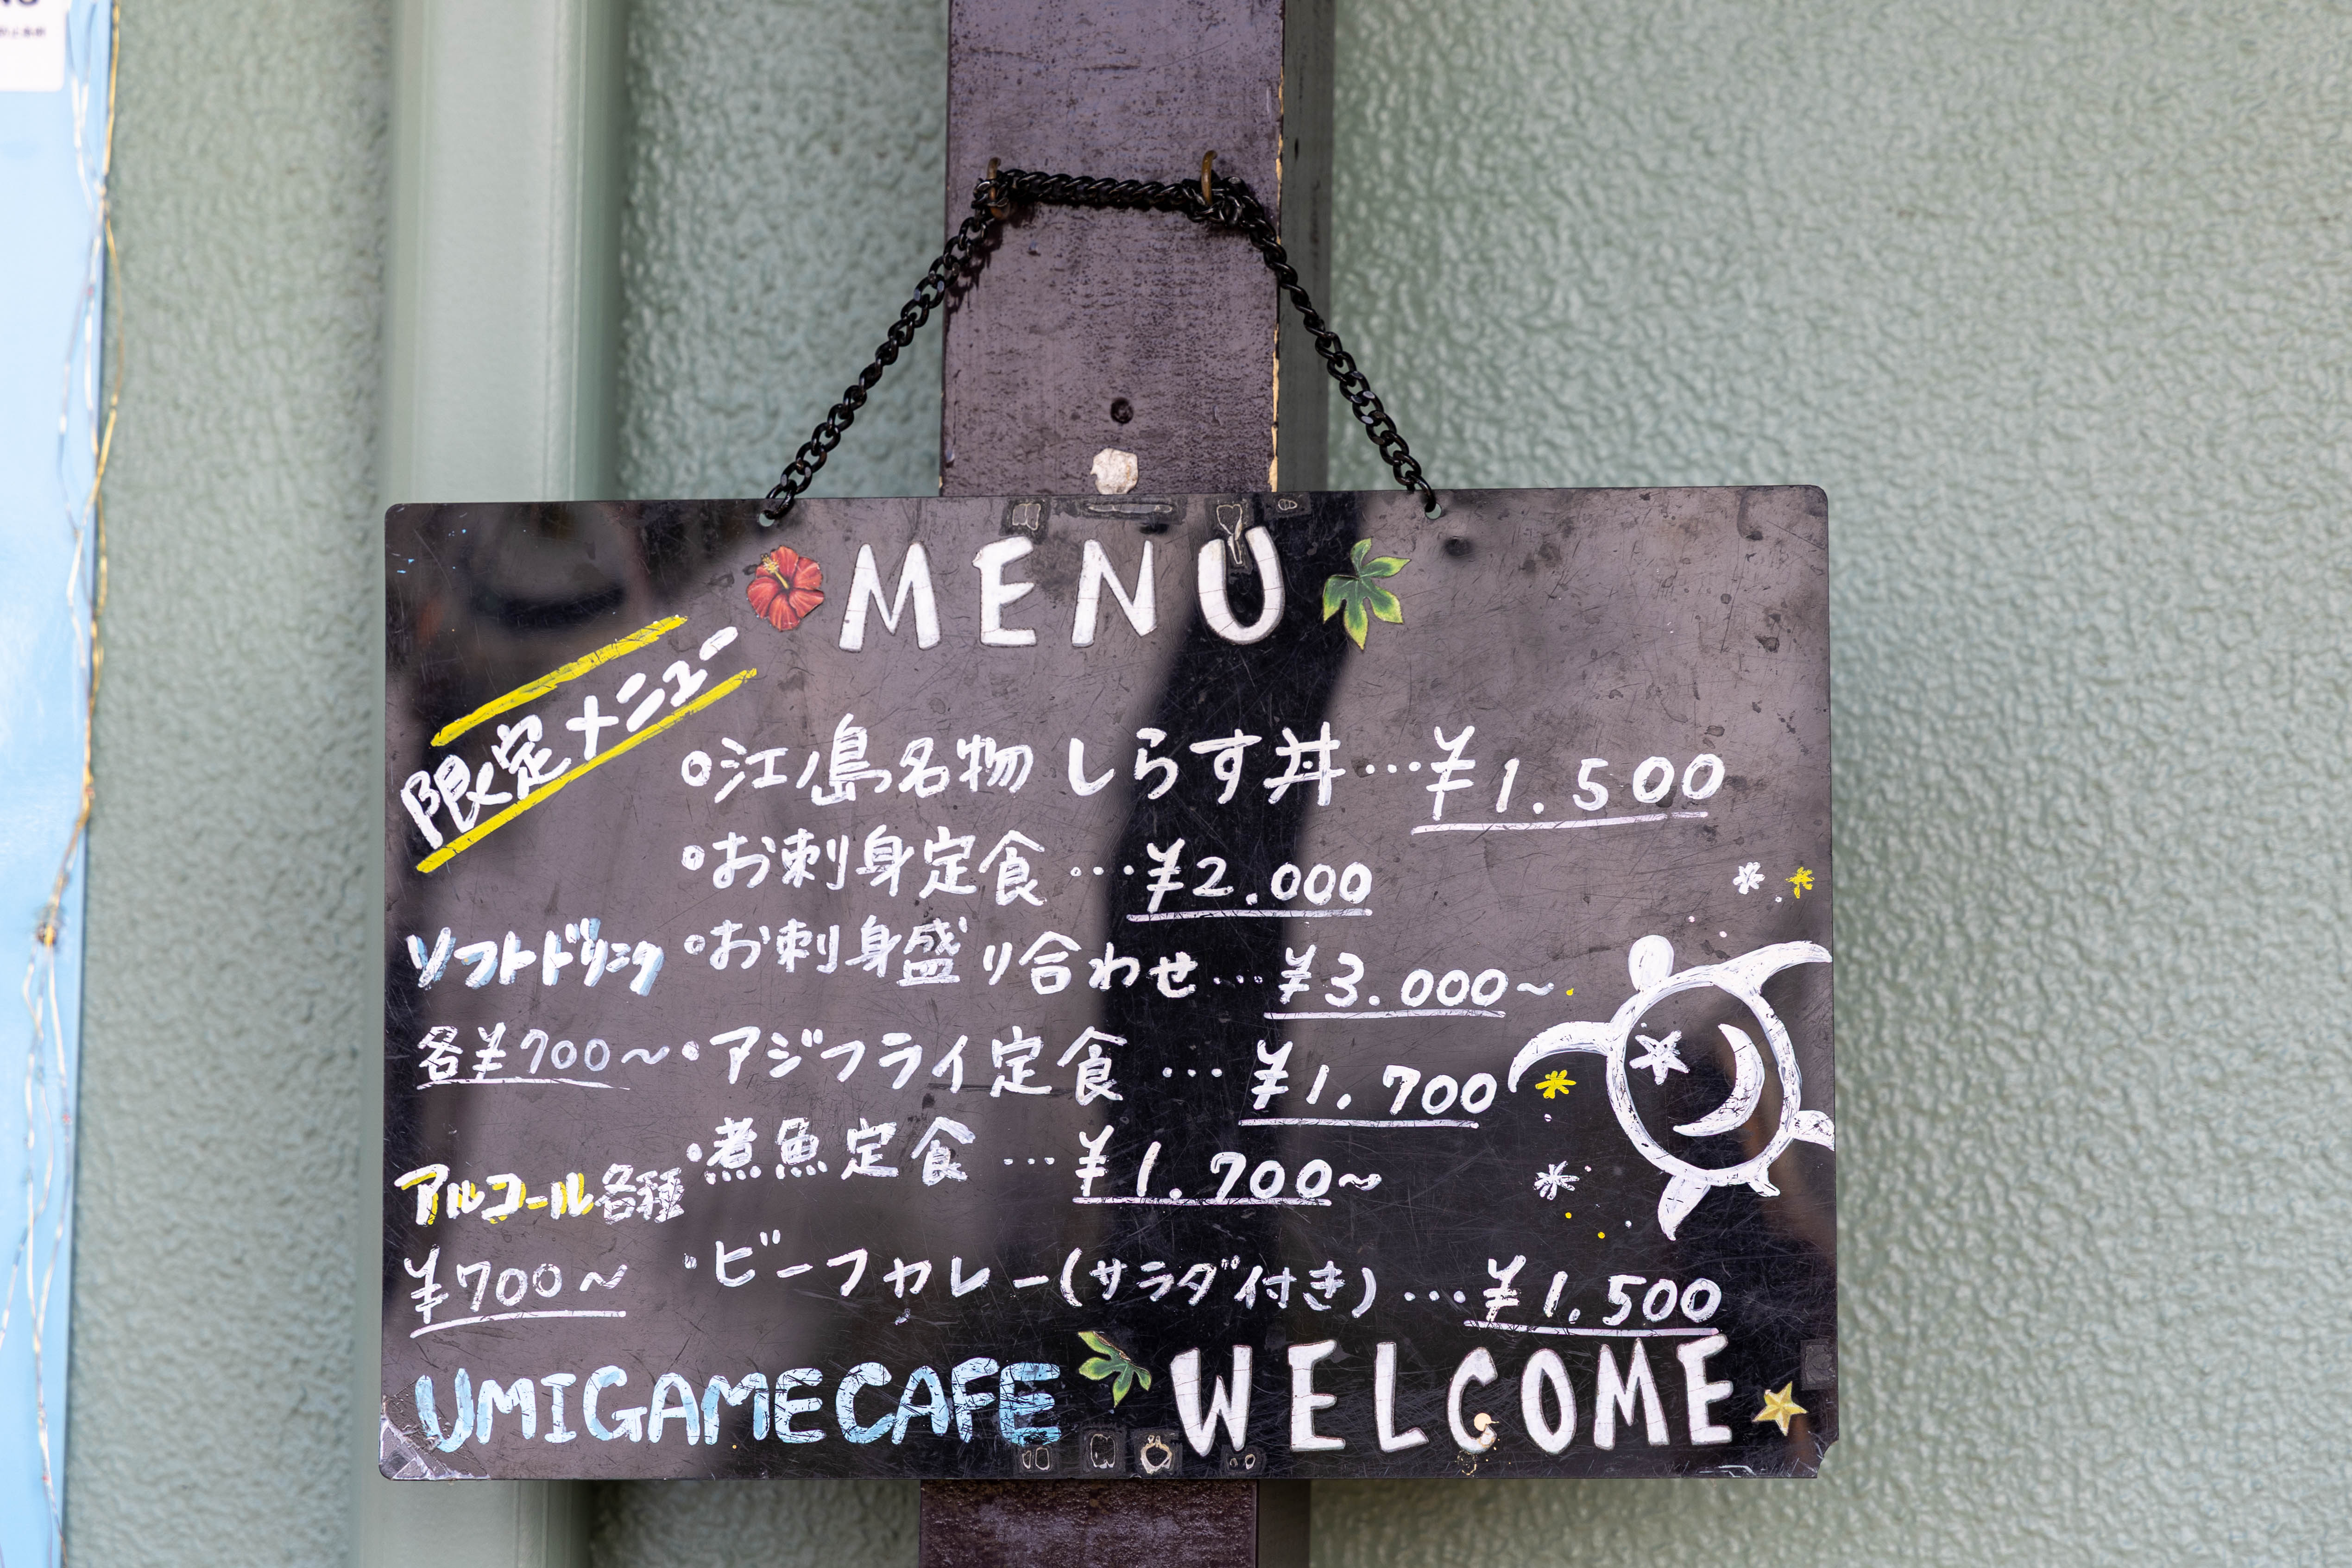 MENU
限定メニュー
江ノ島名物 しらす丼…¥1.500
お刺身定食…¥2.000
お刺身盛り合わせ…¥3.000~
アジフライ定食…¥1.700
煮魚定食…¥1.700~
ビーフカレー(サラダ付き)…¥1.500
ソフトドリンク
各¥700~
アルコール各種
¥700~
UMIGAMECAFE
WELCOME